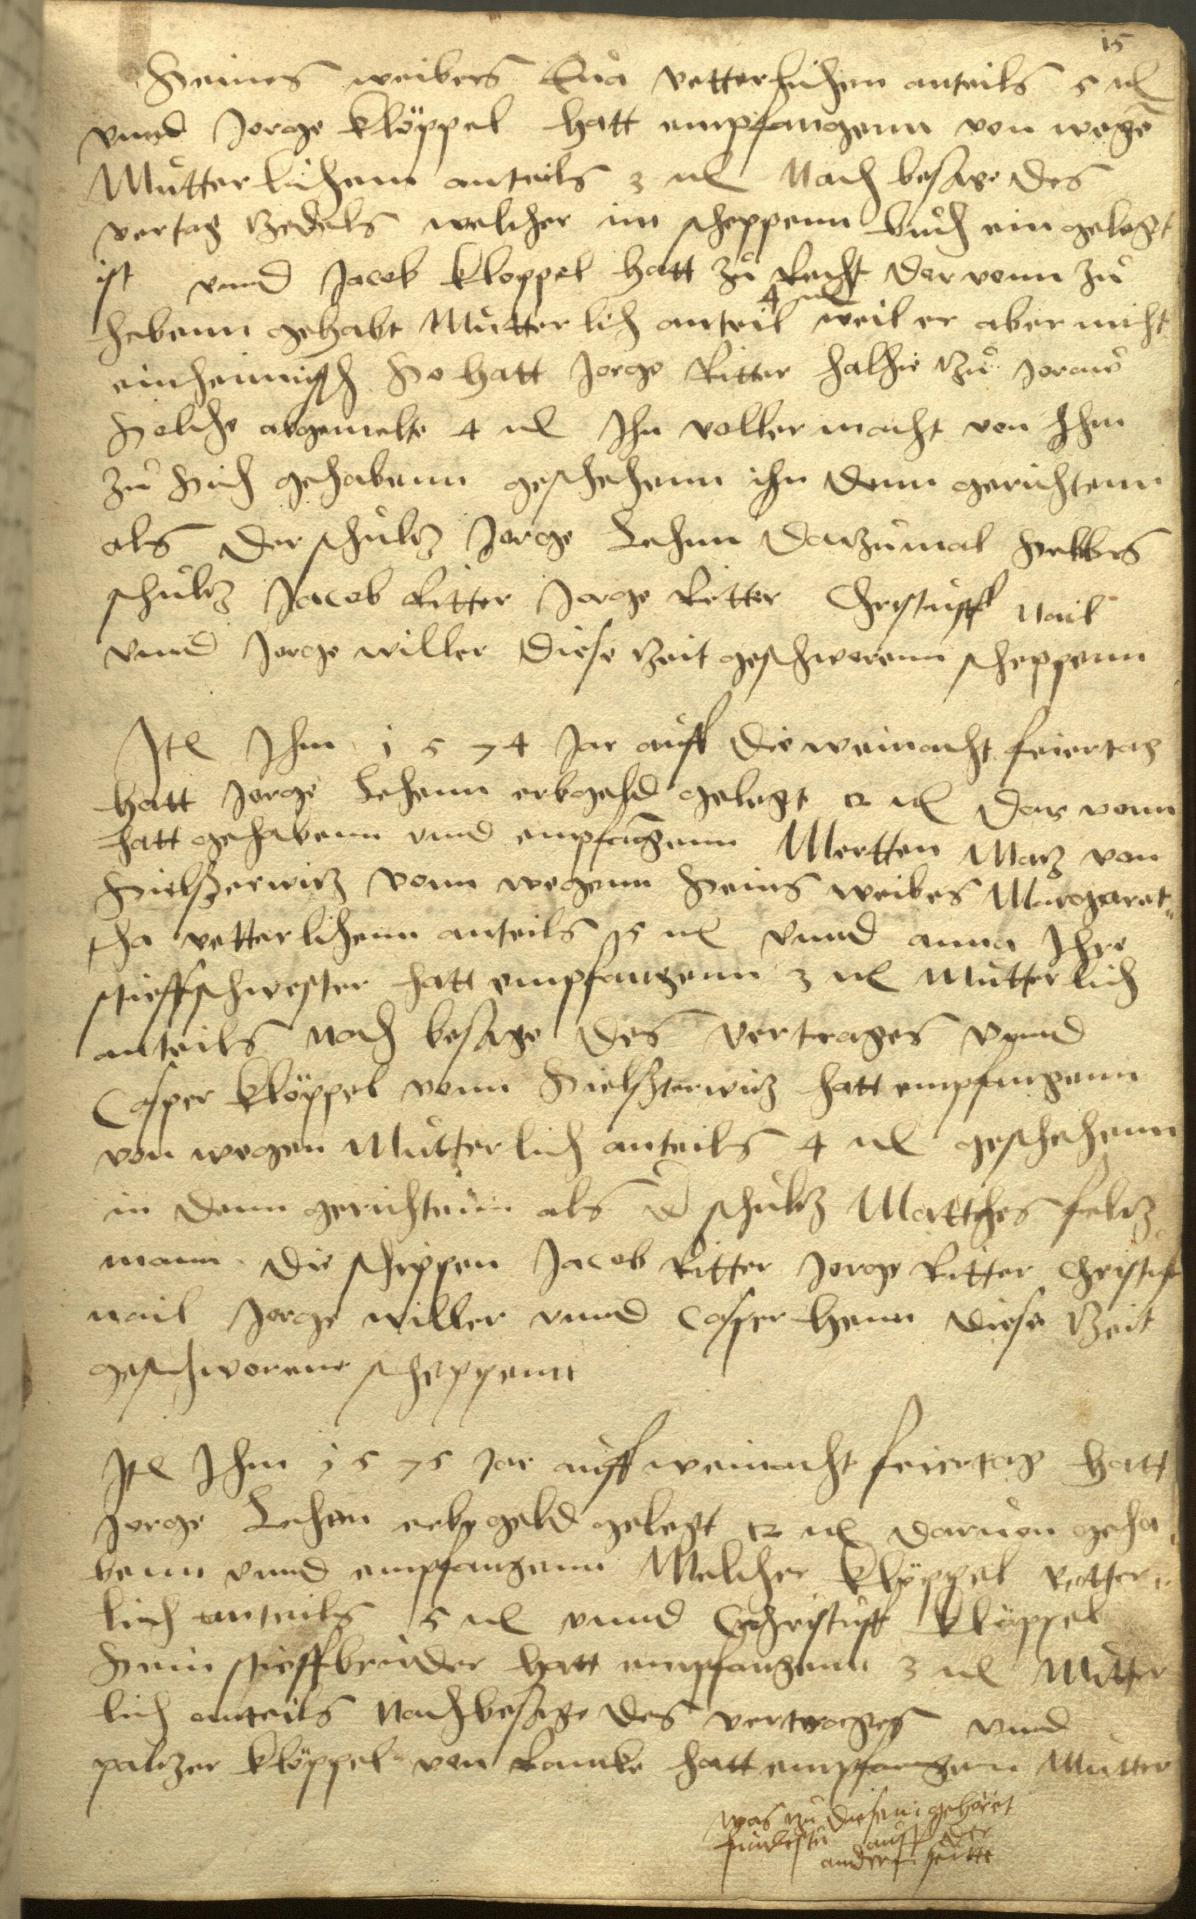 15
Seines weibes Eua vetterlichen anteils 5 mk
vnnd Jorge klöppel hatt empfangenn von wegē
Mutterlichenn anteils 3 mk Nach besage des
vertag Zedels welcher im scheppenn buch ein gelegt
ist vnnd Jacob kloppel hatt zu Recht dor vonn zu
habenn gehabt Mutterlich anteil 4 mk weil er aber nicht
einheimisch So hatt Jorge Ritter
Solche abgemelte 4 mk Jhn voller macht von Jhm
zu sich gehabenn geschehenn ihn denn gerichtenn
als der schultz Jorge Lehmn dazumal Selbes
schultz Jacob Ritter Jorge Ritter Christuff Nail
vnnd Jorge willer diese Zeit geschworenn scheppenn
Jtl Jhm 1574 Jar auff die weinacht feiertag
hatt Jorge Lehenn erbgeld gelegt 12 mk dar vonn
hatt gehabenn vnnd empfangenn Mertten Marz von
vonn wegenn Seins weibes Margaret
tha vetterlichenn anteils 5 mk vnnd anna Jhre
stieffschwester hatt empfangenn 3 mk Mutterlich
anteils noch besage des vertrages vnnd
Casper klöppel vonn hatt empfangenn
von wegen Mutterlich anteils 4 mk geschehenn
in denn gerichtenn als d schultz Mattthes feltz
mann die scheppen Jacob Ritter Jorge Ritter Christuff
nail Jorge willer vnnd Casper henn diese Zeit
geschworene scheppenn
Jtl Jhm 1575 Jar auff weinacht feiertag hatt
Jorge Lehenn erbgeld gelegt 12 mk daruon geha
benn vnnd empfangenn Melcher klöppel vetter
lich anteils 5 mk vnnd Christuff klöppel
Sein stieffbruder hatt empfangenn 3 mk Mutter
lich anteils Nach besage des vertrages vnnd
paltzer klöppel von hatt empfangenn Mutter
was zu diesem gehöret
findestu auff der
andern seitte